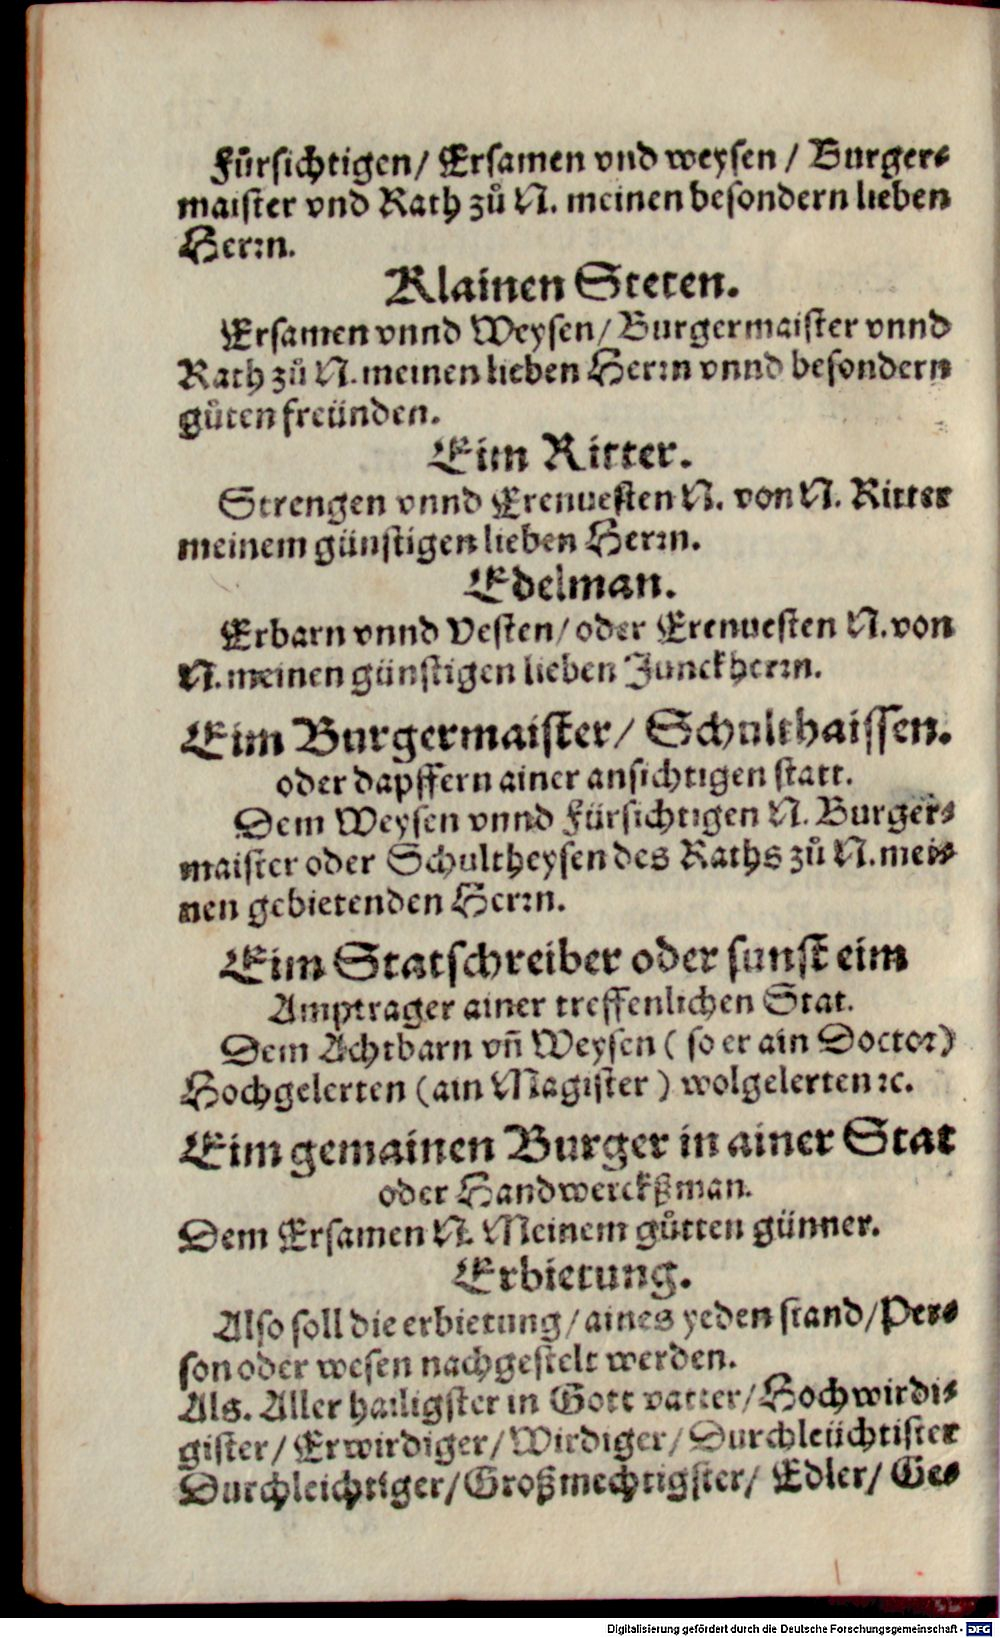 Fürsichtigen/ Ersamen vnd weysen / Burger⸗
maister vnd Rath zů N. meinen besondern lieben
Herꝛn.
Klainen Steten.
Ersamen vnnd Weysen/ Burgermaister vnnd
Rath zů N. meinen lieben Herꝛn vnnd besondern
gůten freünden.
Eim Ritter.
Strengen vnnd Erenuesten N. von N. Ritter
meinem günstigen lieben Herꝛn.
Edelman.
Erbarn vnnd Vesten/ oder Erenuesten N. von
N. meinen günstigen lieben Junckherꝛn.
Eim Burgermaister/ Schulthaissen.
oder dapffern ainer ansichtigen statt.
Dem Weysen vnnd Fürsichtigen N. Burger⸗
maister oder Schultheysen des Raths zů N. mei⸗
nen gebietenden Herꝛn.
Eim Statschreiber oder sunst eim
Amptrager ainer treffenlichen Stat.
Dem Achtbarn vñ Weysen ( so er ain Doctoꝛ)
Hochgelerten (ain Magister ) wolgelerten ꝛc.
Eim gemainen Burger in ainer Stat
oder Handwerckßman.
Dem Ersamen N. Meinem gůtten günner.
Erbietung.
Also soll die erbietung/ aines yeden stand/ Per⸗
son oder wesen nachgestelt werden.
Als. Aller hailigster in Gott vatter/ Hochwirdi⸗
gister/ Erwirdiger/ Wirdiger/ Durchleüchtister
Durchleichtiger/ Großmechtigster/ Edler/ Ge⸗
Digitalisierung gefördert durch die Deutsche Forschungsgemeinschaft - DFG